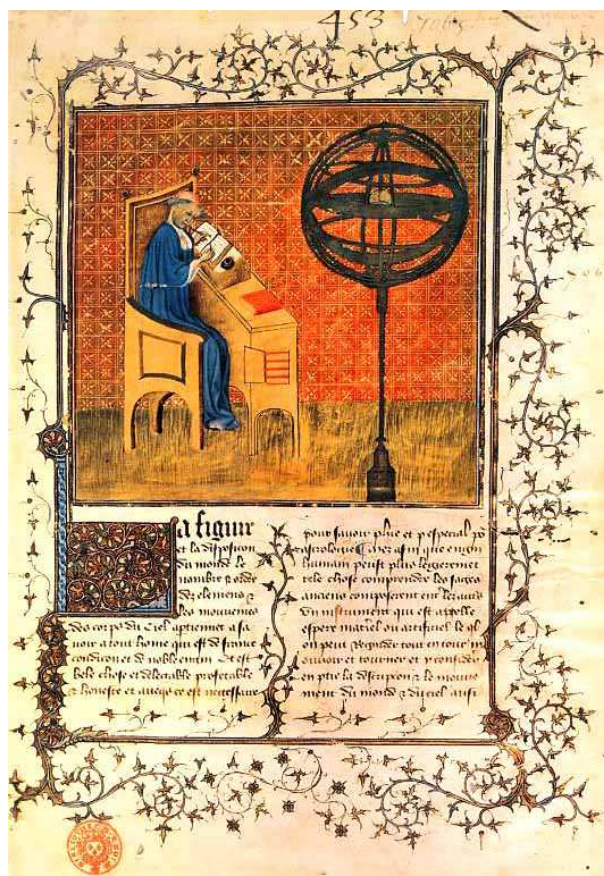 453
La figure
et la disposicion
du monde le
nombre et ordre
des elemens et
les mouvemens
des corps du ciel aptiennent a sa
voir a tout home qui est de france
condicion et de noble engin Et est
bele chose et delectable profetable
et honeste et avecqs ce est necessaire
pour savoir plus et p especial po
astrologie Mes afin que engin
humain peust plus legierement
tele chose comprendre les sages
anciens composerent
un instrument qui est appelle
espere materiel ou artificiel le ql
on peut regarder tout entour
mouvoir et tourner et y considerer
en ptie la descripcion et le mouve
ment du monde et du ciel ausi